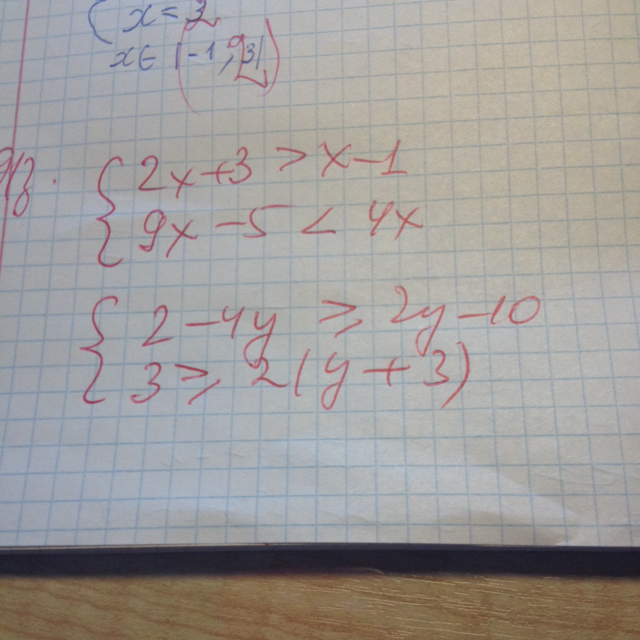 { x = 2
x ∈ (-1, 3)
{ 2x+3 > x-1
9x-5 < 4x
{ 2-4y ⩾ 2y-10
3 ⩾ 2(y+3)